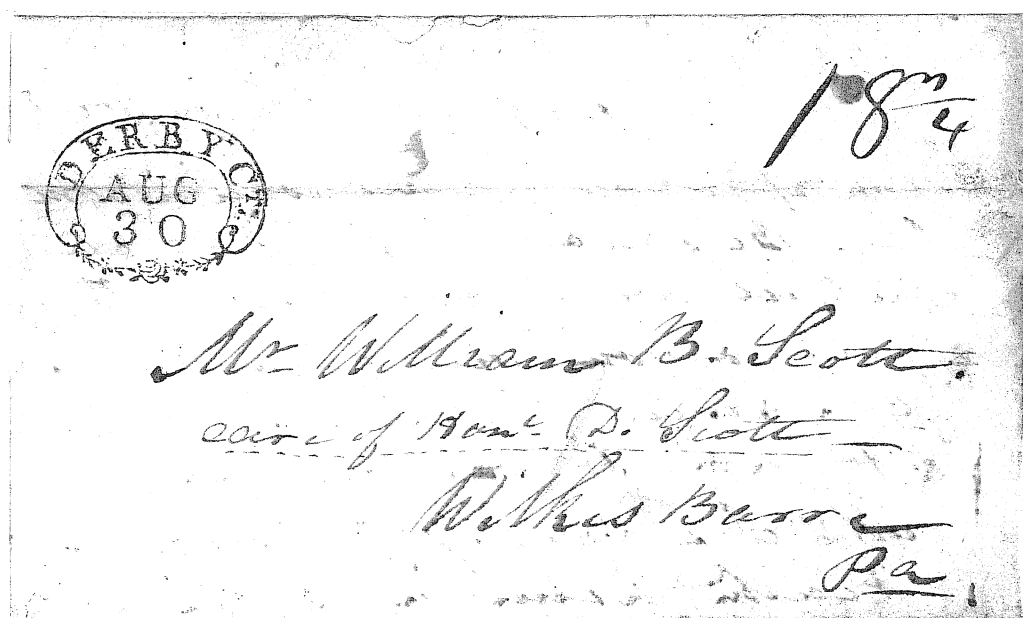 18 3/4
DERBY Ct.
AUG
30
Mr William B. Scott.
care of Honl. D. Scott
Wilkes Barre
Pa